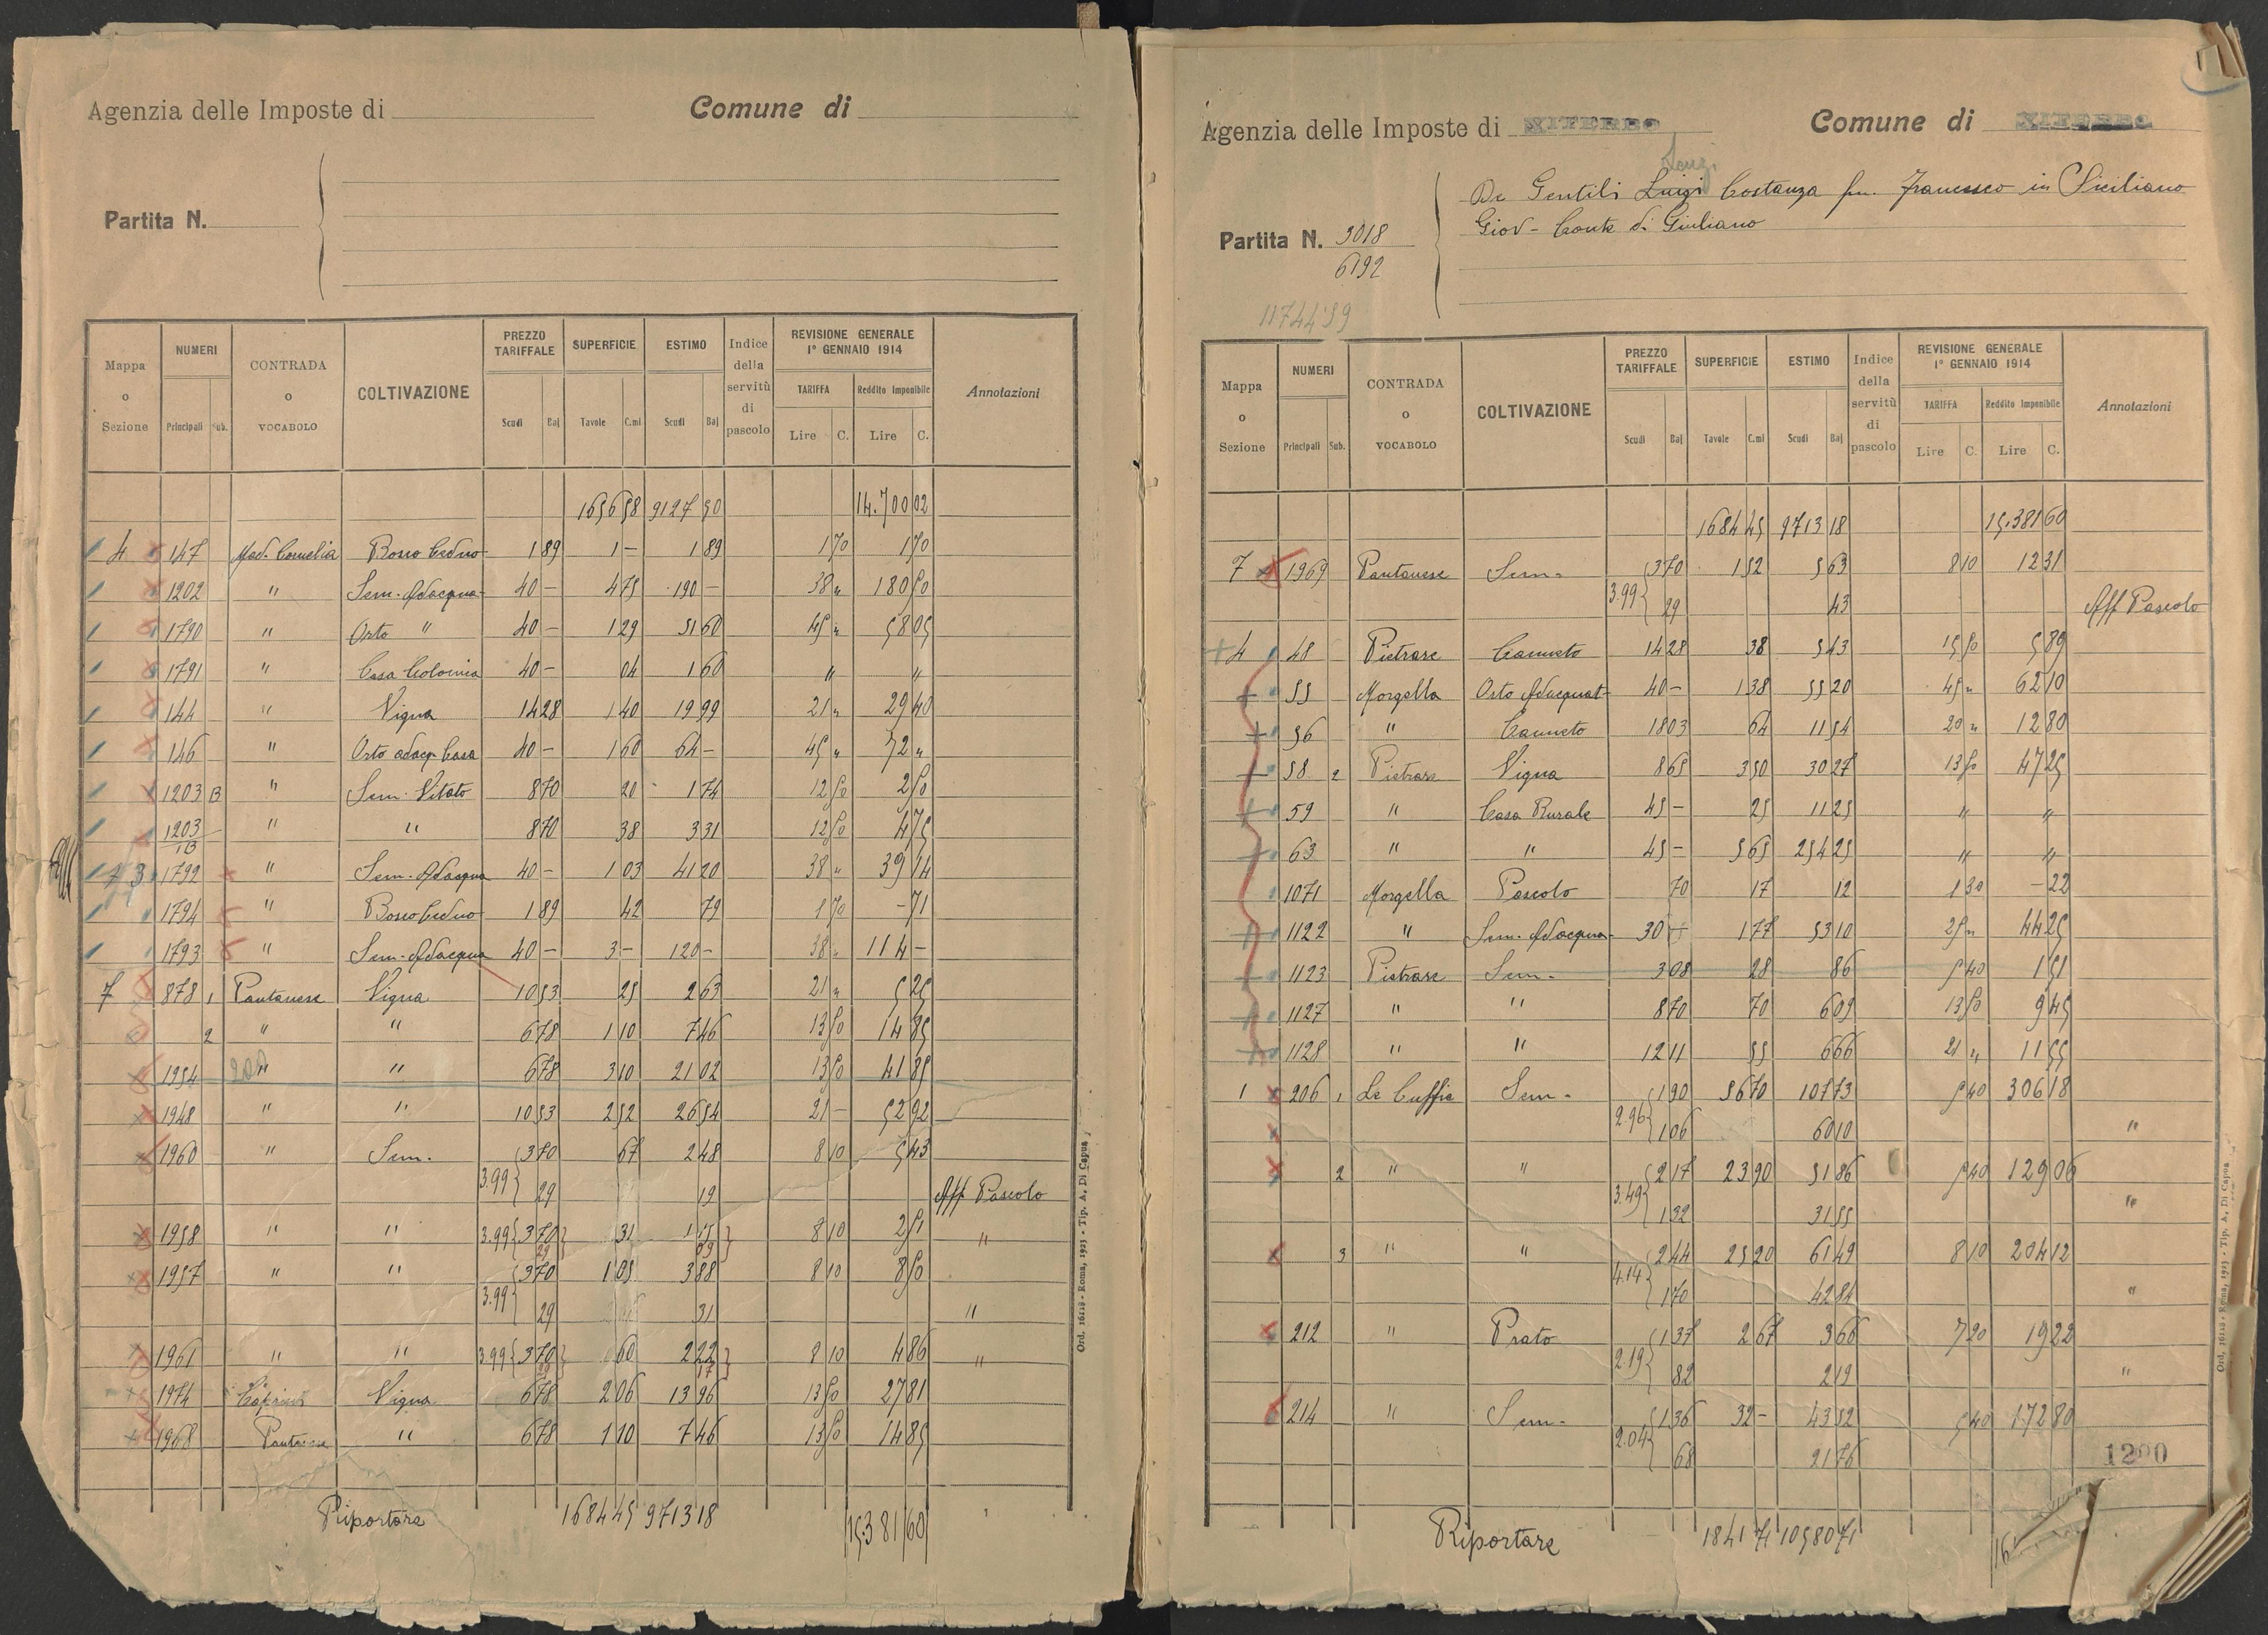 Agenzia delle Imposte di
Comune di
Partita N.
Mappa o Sezione NUMERI Principali Sub. CONTRADA o VOCABOLO COLTIVAZIONE PREZZO TARIFFALE Scudi Baj SUPERFICIE Tavole C.mi ESTIMO Scudi Baj Indice della servitù di pascolo REVISIONE GENERALE 1° GENNAIO 1914 TARIFFA Lire C. Reddito Imponibile Lire C. Annotazioni
1656 58 9127 50 14.700 02
4 147 Mad. Cornelia Bosco Ceduo 1 89 1 — 1 89 1 70 1 70
1202 " Sem. Adacqua 40 — 4 75 190 — 38 " 180 50
1790 " Orto " 40 — 1 29 51 60 45 " 58 05
1791 " Casa Colonica 40 — 04 1 60 " "
144 " Vigna 14 28 1 40 19 99 21 " 29 40
146 " Orto adacq. Casa 40 — 1 60 64 — 45 " 72 "
1203 B " Sem. Vitato 8 70 20 1 74 12 50 2 50
1203 " " 8 70 38 3 31 12 50 4 75
1B
3 1792 " Sem. Adacqua 40 — 1 03 41 20 38 " 39 14
1794 " Bosco Ceduo 1 89 42 79 1 70 — 71
1793 " Sem. Adacqua 40 — 3 — 120 — 38 " 114 —
7 878 1 Pantanese Vigna 10 53 25 2 63 21 " 5 25
2 " " 6 78 1 10 7 46 13 50 14 85
1954 " " 6 78 3 10 21 02 13 50 41 85
1948 " " 10 53 2 52 26 54 21 — 52 92
1960 " Sem. 3 70 67 2 48 8 10 5 43
3.99 29 19 Aff Pascolo
1958 " " 3.99 3 70 31 1 15 8 10 2 51 "
29 09
1957 " " 3 70 1 05 3 88 8 10 8 50
3.99 29 31 "
1961 " " 3.99 3 70 60 2 22 8 10 4 86 "
29 17
1974 Vigna 6 78 2 06 13 96 13 50 27 81
1968 Pantanese " 6 78 1 10 7 46 13 50 14 85
Riportare 1684 45 9713 18 15.381 60
Ord. 16118 - Roma, 1923 - Tip. A. Di Capua
Agenzia delle Imposte di VITERBO
Comune di VITERBO
De Gentili Luigi Costanza fu. Francesco in Siciliano
Giov- Conte di Giuliano
Partita N. 3018
6192
11744'59
Mappa o Sezione NUMERI Principali Sub. CONTRADA o VOCABOLO COLTIVAZIONE PREZZO TARIFFALE Scudi Baj SUPERFICIE Tavole C.mi ESTIMO Scudi Baj Indice della servitù di pascolo REVISIONE GENERALE 1° GENNAIO 1914 TARIFFA Lire C. Reddito Imponibile Lire C. Annotazioni
1684 45 9713 18 15.381 60
7 1969 Pantanese Sem. 3 70 1 52 5 63 8 10 12 31
3.99 29 43 Aff Pascolo
4 48 Pietrare Canneto 14 28 38 5 43 15 50 5 89
55 Morgella Orto Adacquat 40 — 1 38 55 20 45 " 62 10
56 " Canneto 18 03 64 11 54 20 " 12 80
58 2 Pietrare Vigna 8 65 3 50 30 27 13 50 47 25
59 " Casa Rurale 45 — 25 11 25 " "
63 " " 45 — 5 65 254 25 " "
1071 Morgella Pascolo 70 17 12 1 30 — 22
1122 " Sem. Adacqua 30 — 1 77 53 10 25 " 44 25
1123 Pietrare Sem- 3 08 28 86 5 40 1 51
1127 " " 8 70 70 6 09 13 50 9 45
1128 " " 12 11 55 6 66 21 " 11 55
1 206 1 Le Cuffie Sem- 1 90 56 70 107 73 5 40 306 18
2.96 1 06 60 10 "
2 " " 2 17 23 90 51 86 5 40 129 06
3.49 1 32 31 55 "
3 " " 2 44 25 20 61 49 8 10 204 12
4.14 1 70 42 84 "
212 " Prato 1 37 2 67 3 66 7 20 19 22
2.19 82 2 19 "
214 " Sem- 1 36 32 — 43 52 5 40 172 80
2.04 68 21 76
1200
Riportare 1841 71 10580 71 16
Ord. 16118 - Roma, 1923 - Tip. A. Di Capua